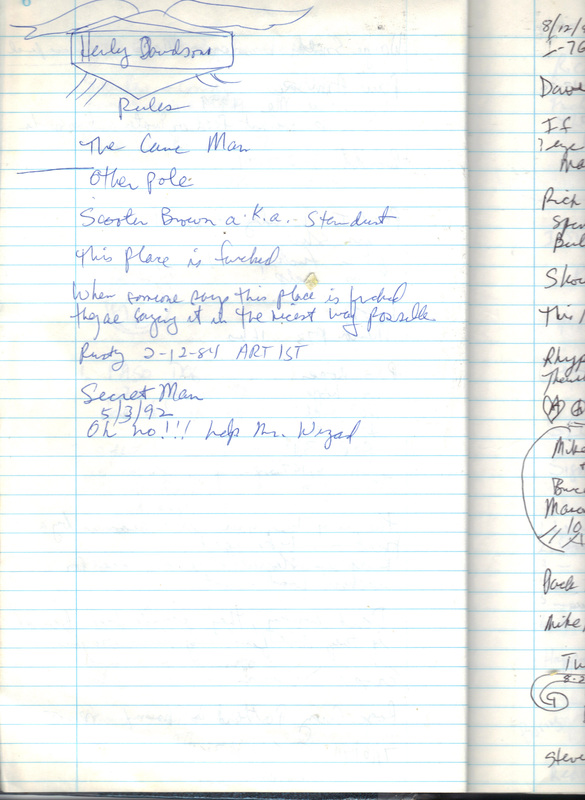 Harley Davidson
Rules
The Cave Man
Other pole
Scooter Brown a.k.a. Stardust
This place is fucked
When someone says this place is fucked
they're saying it in the nicest way possible.
Rusty 2-12-84 ARTIST
Secret Man
5/3/92
Oh no!!! help Mr. Wizad
8/12/
Dave
If
Rich
This
Mike
10
Mike,
Steve